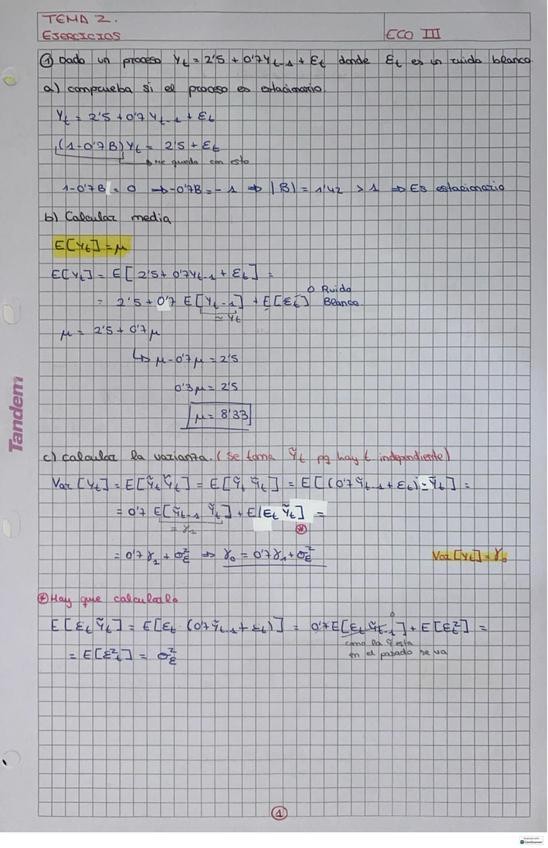 TEMA 2.
EJERCICIOS
ECO III
① Dado un proceso Yt = 2'5 + 0'7Yt-1 + Et donde Et es un ruido blanco
a) comprueba si el proceso es estacionario.
Yt = 2'5 + 0'7 Yt-1 + Et
(1-0'7B)Yt = 2'5 + Et
→ me queda con esto
1-0'7B = 0 ⇒ -0'7B = -1 ⇒ |B| = 1'42 > 1 ⇒ Es estacionario
b) Calcular media
E[Yt] = μ
E[Yt] = E[2'5 + 0'7Yt-1 + Et] =
= 2'5 + 0'7 E[Yt-1] + E[Et] 0 Ruido Blanco
≈ Yt
μ = 2'5 + 0'7μ
↳ μ-0'7μ = 2'5
0'3μ = 2'5
μ = 8'33
Tandem
c) calcular la varianza. (Se toma Ỹt pq hay t. independiente)
Var [Yt] = E[Ỹt Ỹt] = E[Ỹt Ỹt] = E[(0'7Ỹt-1 + Et) = Ỹt] =
= 0'7 E[Ỹt-1 Ỹt] + E[Et Ỹt] =
= γ1
⊛
= 0'7γ1 + σ²E ⇒ γ0 = 0'7γ1 + σ²E
Var [Yt] = γ0
⊛ Hay que calcularlo
E[Et Ỹt] = E[Et · (0'7Ỹt-1 + Et)] = 0'7E[Et Ỹt-1] + E[E²t] =
0
como la Y esta
en el pasado se va
= E[E²t] = σ²E
①
CamScanner